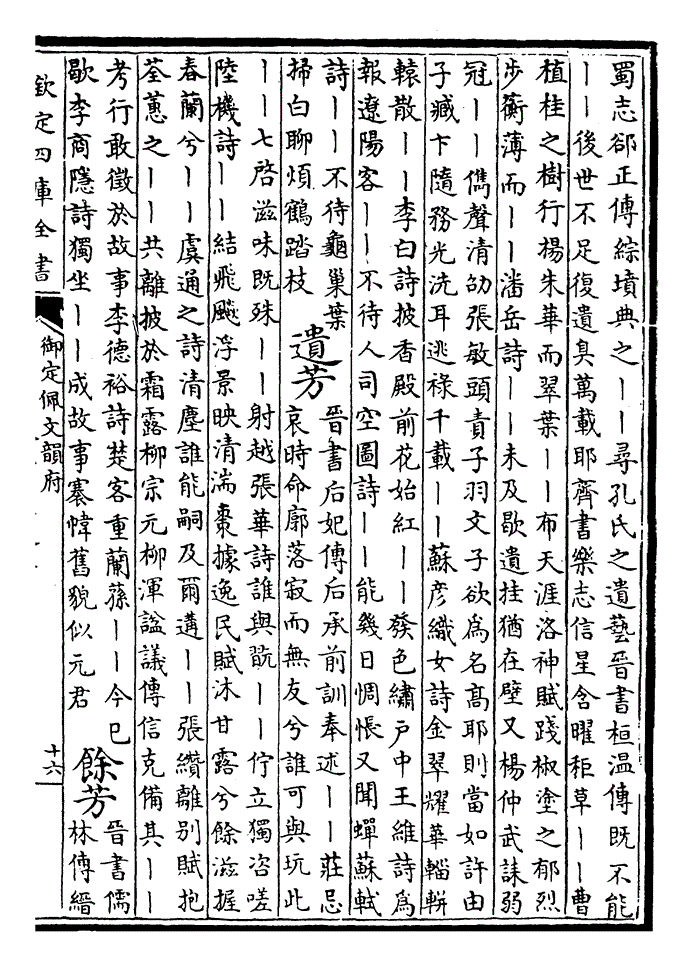 蜀志郤正傳綜墳典之丨丨尋孔氏之遺藝晉書桓温傳既不能
丨丨後世不足復遺臭萬載耶齊書樂志信星含曜秬草丨丨曹
植桂之樹行楊朱華而翠葉丨丨布天涯洛神賦踐椒塗之郁烈
步蘅薄而丨丨潘岳詩丨丨未及歇遺挂猶在壁又楊仲武誄弱
冠丨丨儁聲清劭張敏頭責子羽文子欲爲名高耶則當如許由
子臧卞隨務光洗耳逃祿千載丨丨蘇彦織女詩金翠耀華輜軿
轅散丨丨李白詩披香殿前花始紅丨丨發色繡戶中王維詩爲
報遼陽客丨丨不待人司空圖詩丨丨能幾日惆悵又聞蟬蘇軾
詩丨丨不待龜巢葉
掃白聊煩鶴踏枝
遺芳
晉書后妃傳后承前訓奉述丨丨莊忌
哀時命廓落寂而無友兮誰可與玩此
丨丨七啓滋味既殊丨丨射越張華詩誰與翫丨丨佇立獨咨嗟
陸機詩丨丨結飛飈浮景映清湍棗據逸民賦沐甘露兮餘滋握
春蘭兮丨丨虞通之詩清塵誰能嗣及爾遘丨丨張纘離别賦抱
荃蕙之丨丨共離披於霜露柳宗元柳渾謚議傳信克備其丨丨
考行敢徵於故事李德裕詩楚客重蘭蓀丨丨今巳
歇李商隱詩獨坐丨丨成故事褰幃舊貌似元君
餘芳
晉書儒
林傳縉
欽定四庫全書
御定佩文韻府
十六